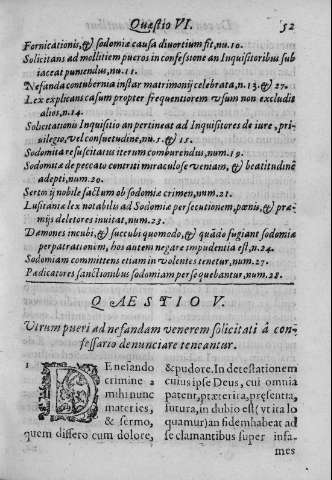 Quæstio VI. 52
Fornicationis, & sodomiæ causa diuortium fit, nu.10.
Solicitans ad mollitiem pueros in confessione an Inquisitoribus sub
iaceat puniendus, nu.11.
Nefanda contubernia instar matrimonij celebrata, n.13. & 27.
Lex explicans casum propter frequentiorem vsum non excludit
alios, n.14.
Solicitationis Inquisitio an pertineat ad Inquisitores de iure, pri-
uilegio, vel consuetudine, nu.5. & 15.
Sodomita resuscitatus iterum comburendus, num.19.
Sodomitæ de peccato contriti miraculose veniam, & beatitudinẽ
adepti, num.20.
nobile factum ob sodomiæ crimen, num.21.
Lusitaniæ lex notabilis ad Sodomiæ persecutionem, pœnis, & præ-
mijs deletores inuitat, num.23.
Dæmones incubi, & succubi quomodo, & quãdo fugiant sodomiæ
perpetrationem, hos autem negare impudentia est, n.24.
Sodomiam committens etiam in volentes tenetur, num.27.
Pædicatores sanctionibus sodomiam persequebantur, num.28.
QAESTIO V.
Vtrum pueri ad nefandam venerem solicitati à con-
fessario denunciare teneantur.
1 DE nefando
crimine
mihi nunc
materies,
& sermo,
quem dissero cum dolore,
& pudore. In detestationem
cuius ipse Deus, cui omnia
patent, præterita, præsentia,
futura, in dubio est (vt ita lo
quamur) an fidem habeat ad
se clamantibus super infa-
mes